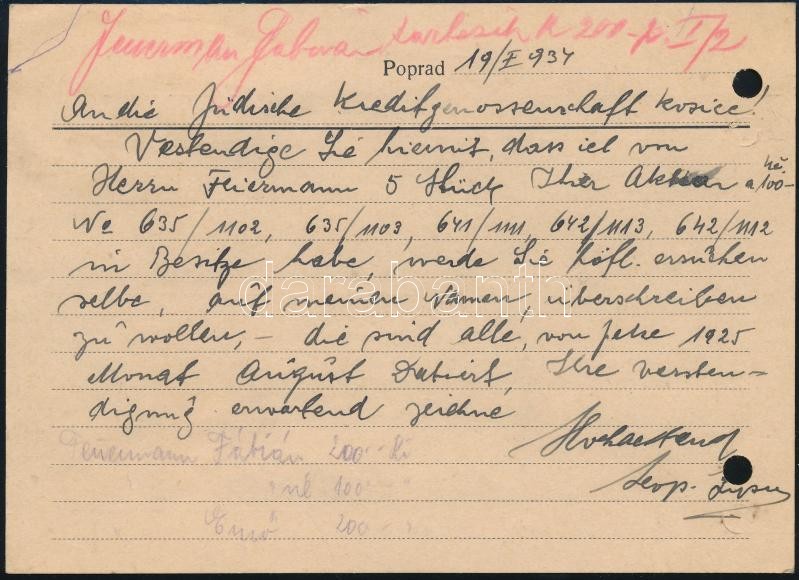 Feuerman Fabian k 200- I/2
Poprad 19/I 934
An die jüdische Kreditgenossenschaft Kosice!
Vestendige Sie hiemit, dass ich von
Herrn Feiermann 5 Stück Ihrer Aktien a Kč 100-
No 635/1102, 635/1103, 641/1111, 642/1113, 642/1112
in Besitze habe, werde Sie höfl. ersuchen
selbe, auf meinen Namen, überschreiben
zu wollen, – die sind alle, von Jahre 1925
Monat August Datiert, Ihre versten-
digung erwartend zeichne
Hochachtend
Leop.
Feuermann Fábián 200-- Kč
100-- "
Ernő 200-- "
darabanth